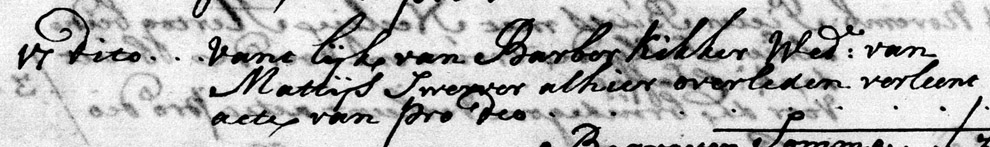 17 dito . . . vant lijk van Barber Kikker Wed: van
Mattijs Iwerver alhier overleden verleent
acte van pro deo . . . . .
Begraven Somma